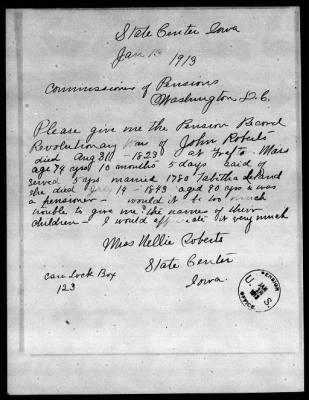 State Center Iowa
Jan 13 1913
Commissioner of Pensions
Washington D.C.
Please give me the Pension Record
Revolutionary War of John Roberts
died Aug 31 - 1823 at Mass
age 74 yrs 10 months 5 days said of
served 5 yrs married 1780 Tabitha
she died July 19 - 1843 aged 80 yrs & was
a pensioner - would it be too much
trouble to give me the names of their
children - I would appreciate it very much
Miss Nellie Roberts
State Center
Iowa.
Care Lock Box
123
U. S.
PENSION
OFFICE